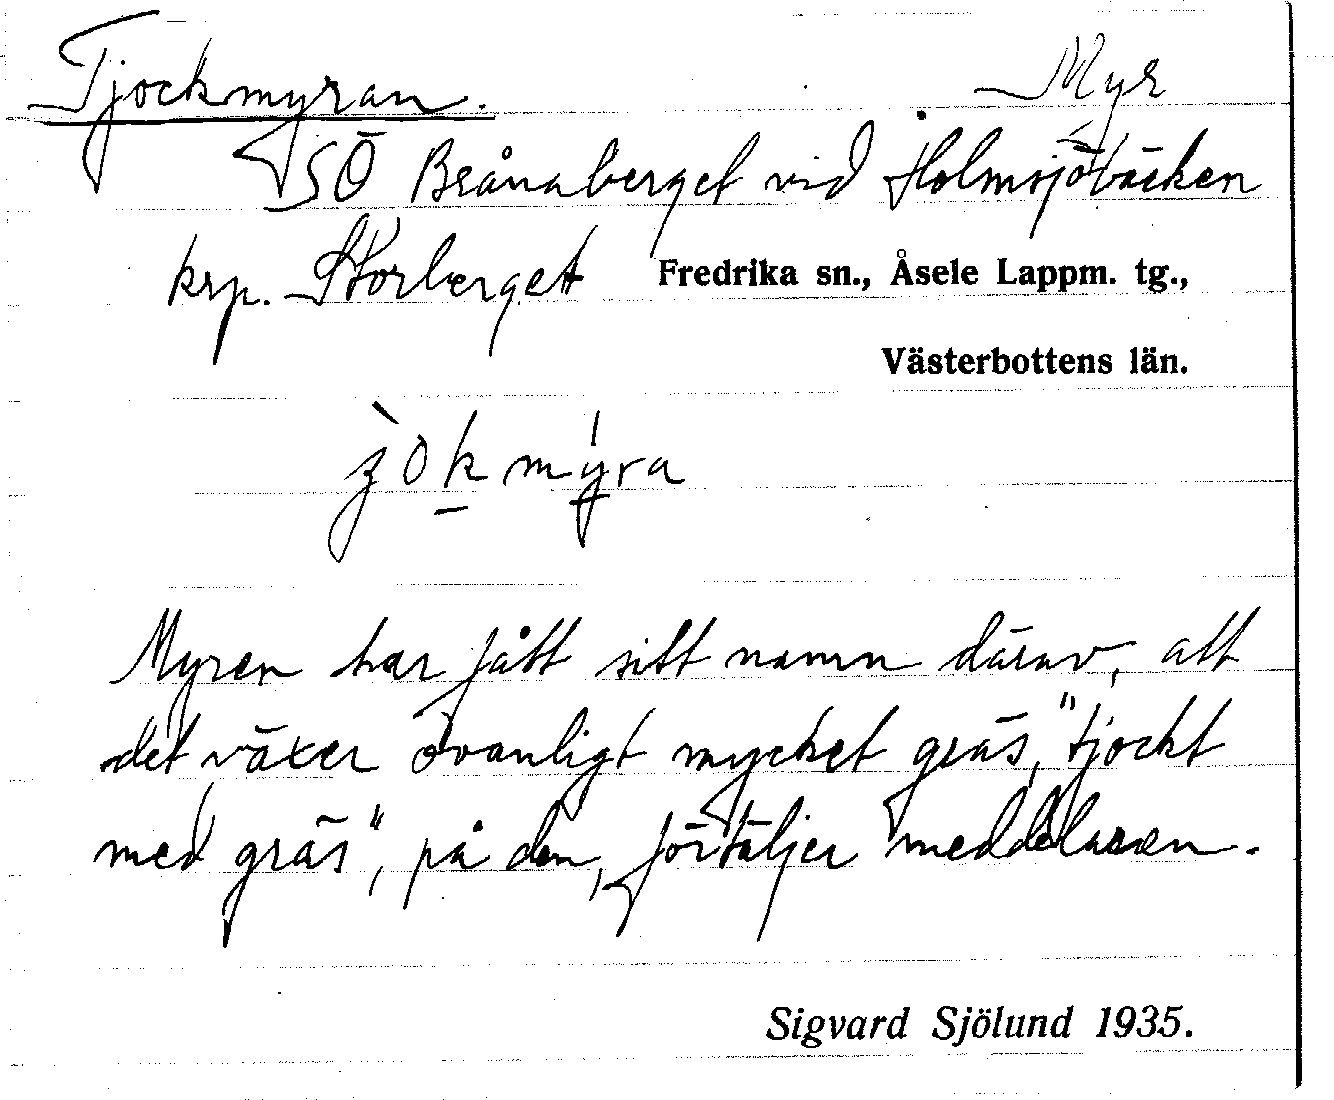 Tjockmyran. Myr
SÖ Brånaberget vid Holmsjöbäcken
krp. Storberget Fredrika sn., Åsele Lappm. tg.,
Västerbottens län.
Myren har fått sitt namn därav, att
det växer ovanligt mycket gräs, "tjockt
med gräs", på den, förtäljer meddelaren.
Sigvard Sjölund 1935.